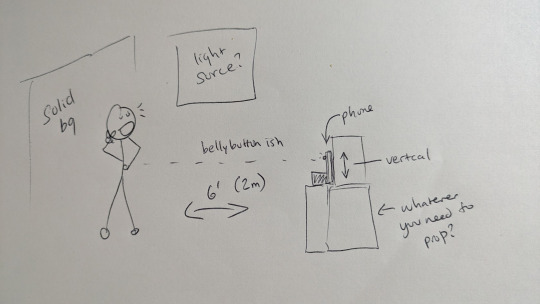 light
surce?
solid
bg
phone
bellybutton ish
vertical
6' (2m)
whatever
you need to
prop?